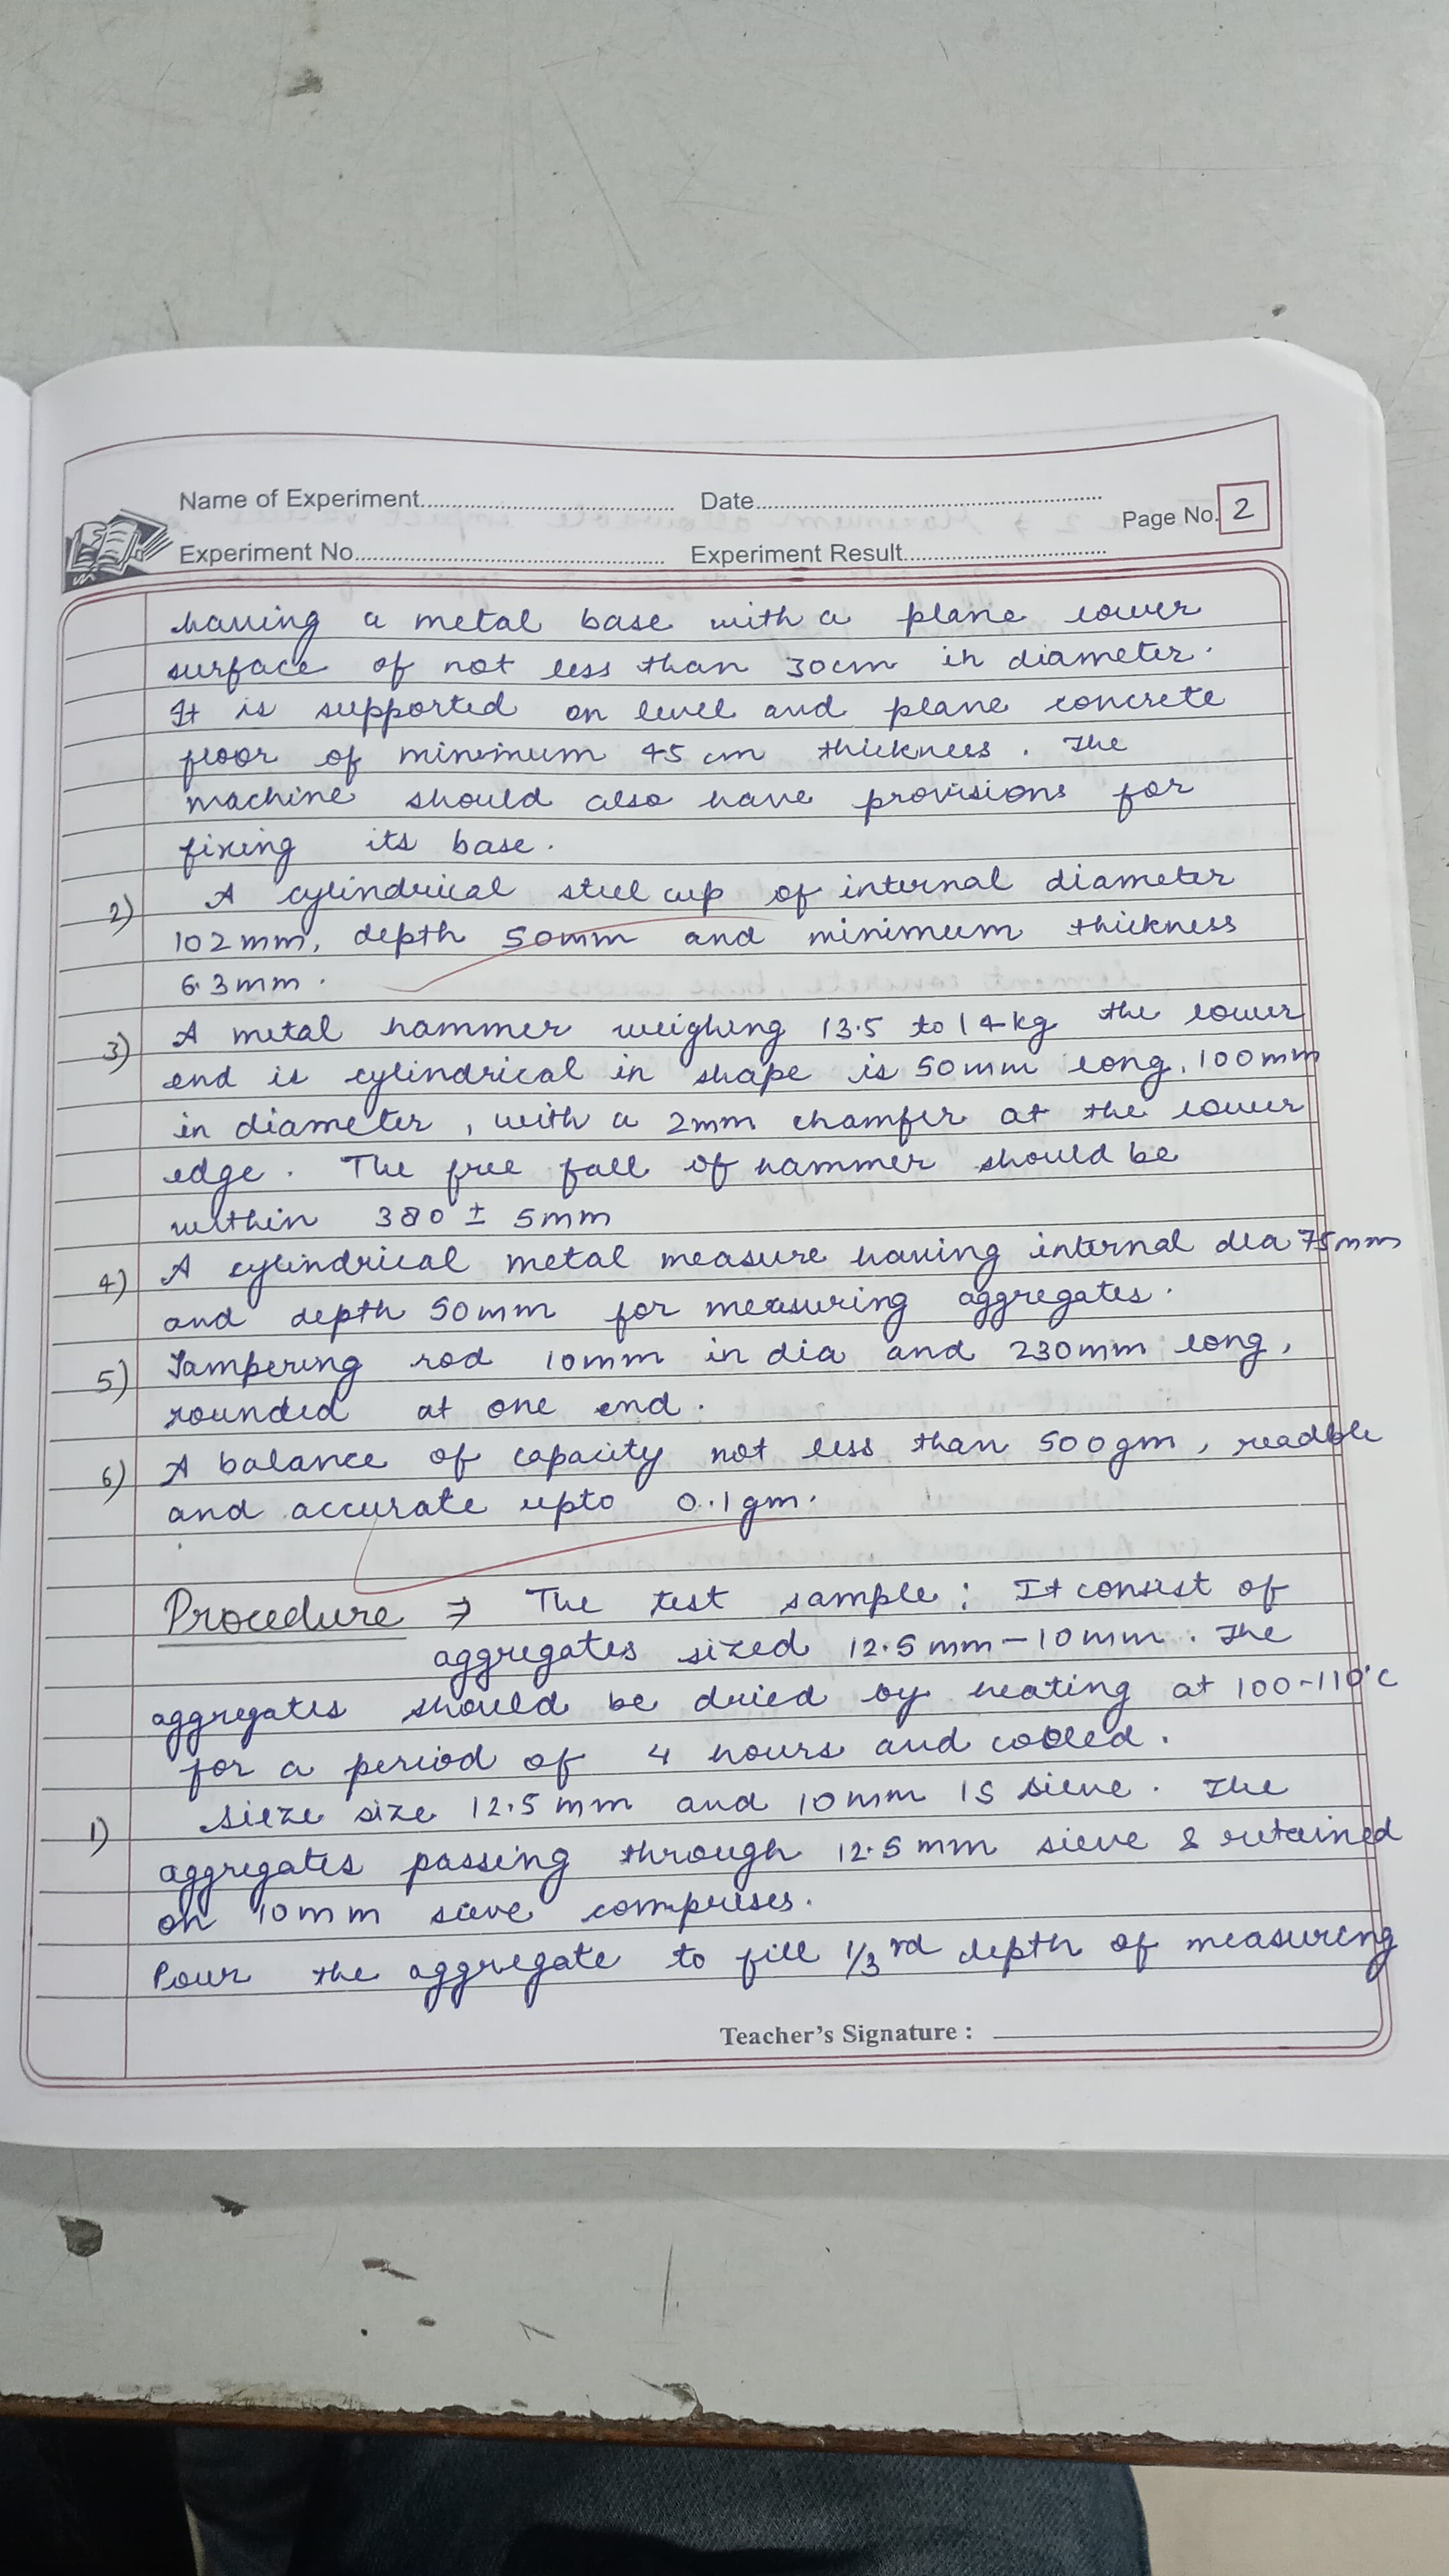 Name of Experiment Date
Page No. 2
Experiment No Experiment Result
having a metal base with a plane lower
surface of not less than 30cm in diameter.
It is supported on level and plane concrete
floor of minimum 45 cm thickness. The
machine should also have provisions for
fixing its base.
2) A cylindrical steel cup of internal diameter
102mm, depth 50mm and minimum thickness
6.3mm.
3) A metal hammer weighing 13.5 to 14kg the lower
end is cylindrical in shape is 50mm long, 100mm
in diameter, with a 2mm chamfer at the lower
edge. The free fall of hammer should be
within 380 ± 5mm
4) A cylindrical metal measure having internal dia 75mm
and depth 50mm for measuring aggregates.
5) Tampering rod 10mm in dia and 230mm long,
rounded at one end.
6) A balance of capacity not less than 500gm, readble
and accurate upto 0.1gm.
Procedure → The test sample: It consist of
aggregates sized 12.5mm-10mm. The
aggregates should be dried by heating at 100-110°C
for a period of 4 hours and cooled.
1) Sieze size 12.5mm and 10mm IS sieve. The
aggregates passing through 12.5mm sieve & retained
on 10mm sieve comprises.
Pour the aggregate to fill 1/3rd depth of measuring
Teacher's Signature :